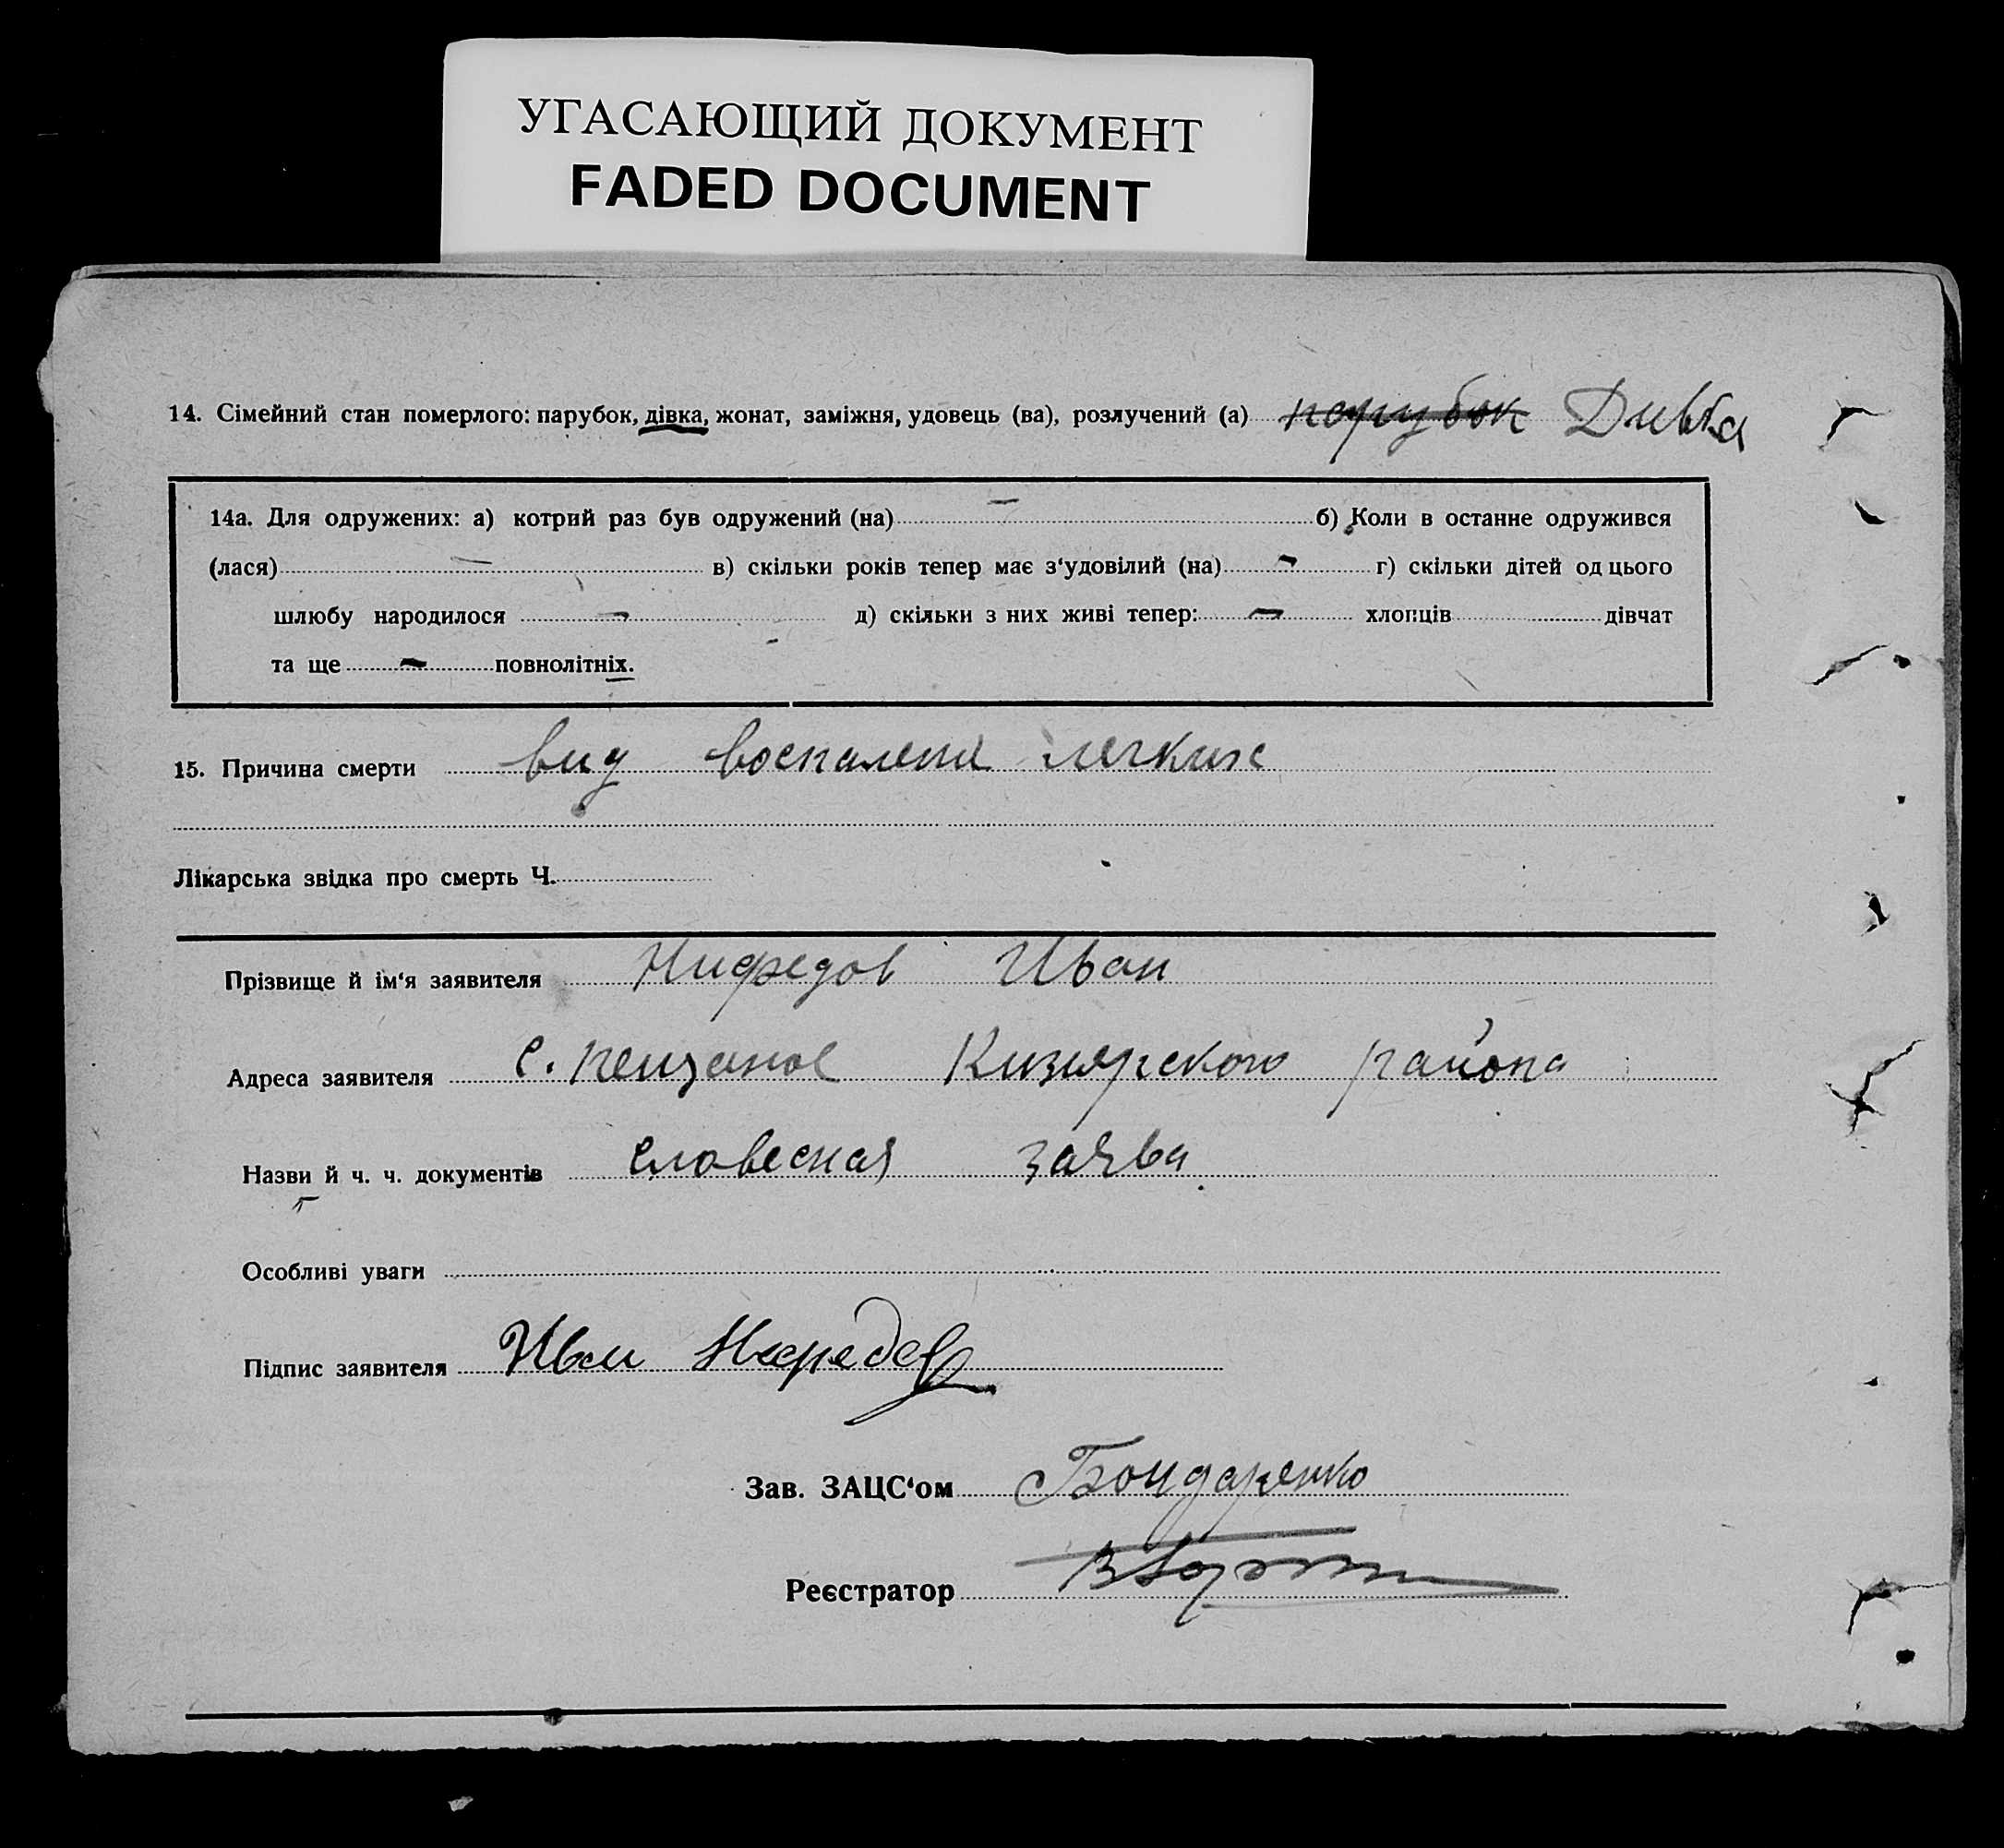 УГАСАЮЩИЙ ДОКУМЕНТ
FADED DOCUMENT
14. Сімейний стан померлого: парубок, дівка, жонат, заміжня, удовець (ва), розлучений (а) парубок Дивка
14а. Для одружених: а) котрий раз був одружений (на) — б) Коли в останнє одружився
(лася) — в) скільки років тепер має з‘удовілий (на) — г) скільки дітей од цього
шлюбу народилося — д) скільки з них живі тепер: — хлопців дівчат
та ще — повнолітніх.
15. Причина смерти вид воспаленя легких
Лікарська звідка про смерть Ч.
Прізвище й ім‘я заявителя Нифедов Иван
Адреса заявителя с. Кизиярского района
Назви й ч. ч. документів словесная заява
Особливі уваги
Підпис заявителя Иван Нефедов
Зав. ЗАЦС‘ом Бондаренко
Реєстратор